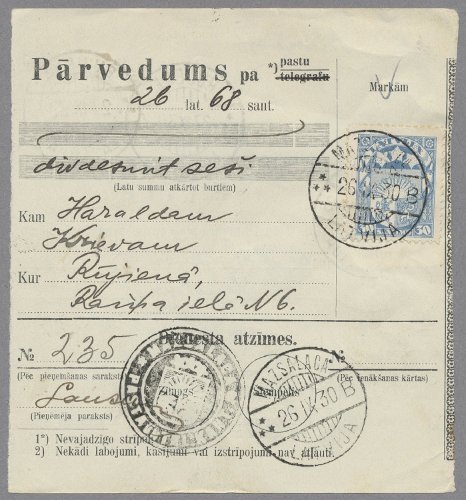 Pārvedums pa *) pastu
telegrafu
Markām
26 lat. 68 sant.
divdesmit seši
(Latu summu atkārtot burtiem)
Kam Haraldam
Krievam
Kur Rūjienā,
ielā N6.
MAZSALACA
26 IX 30 B
LATVIJA
50
Dienesta atzīmes.
№ 235
(Pēc pieņemšanas saraksta)
(Pēc ienākšanas kārtas)
Zīmogs
(Pieņēmēja paraksts)
MAZSALACA
26 IX 30 B
LATVIJA
1*) Nevajadzīgo strīpot
2) Nekādi labojumi, kasījumi vai izstrīpojumi nav atļauti.